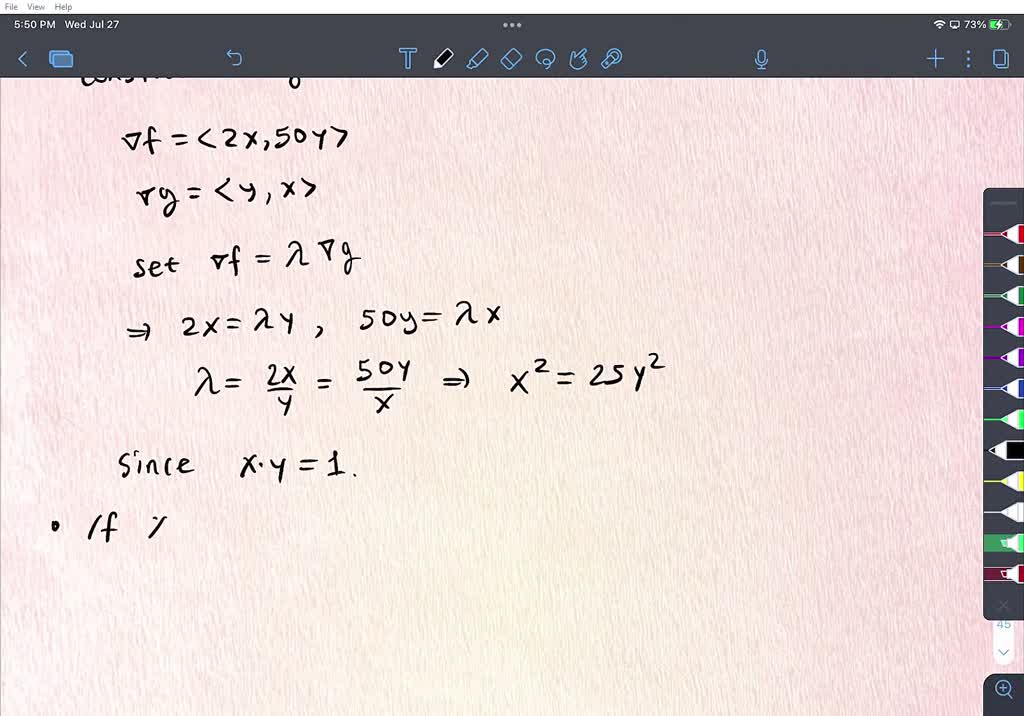 File View Help
5:50 PM Wed Jul 27
73%
∇f = <2x, 50y>
∇g = <y, x>
set ∇f = λ ∇g
⇒ 2x = λy , 50y = λx
λ = 2x/y = 50y/x ⇒ x² = 25y²
Since x·y = 1.
• If
45